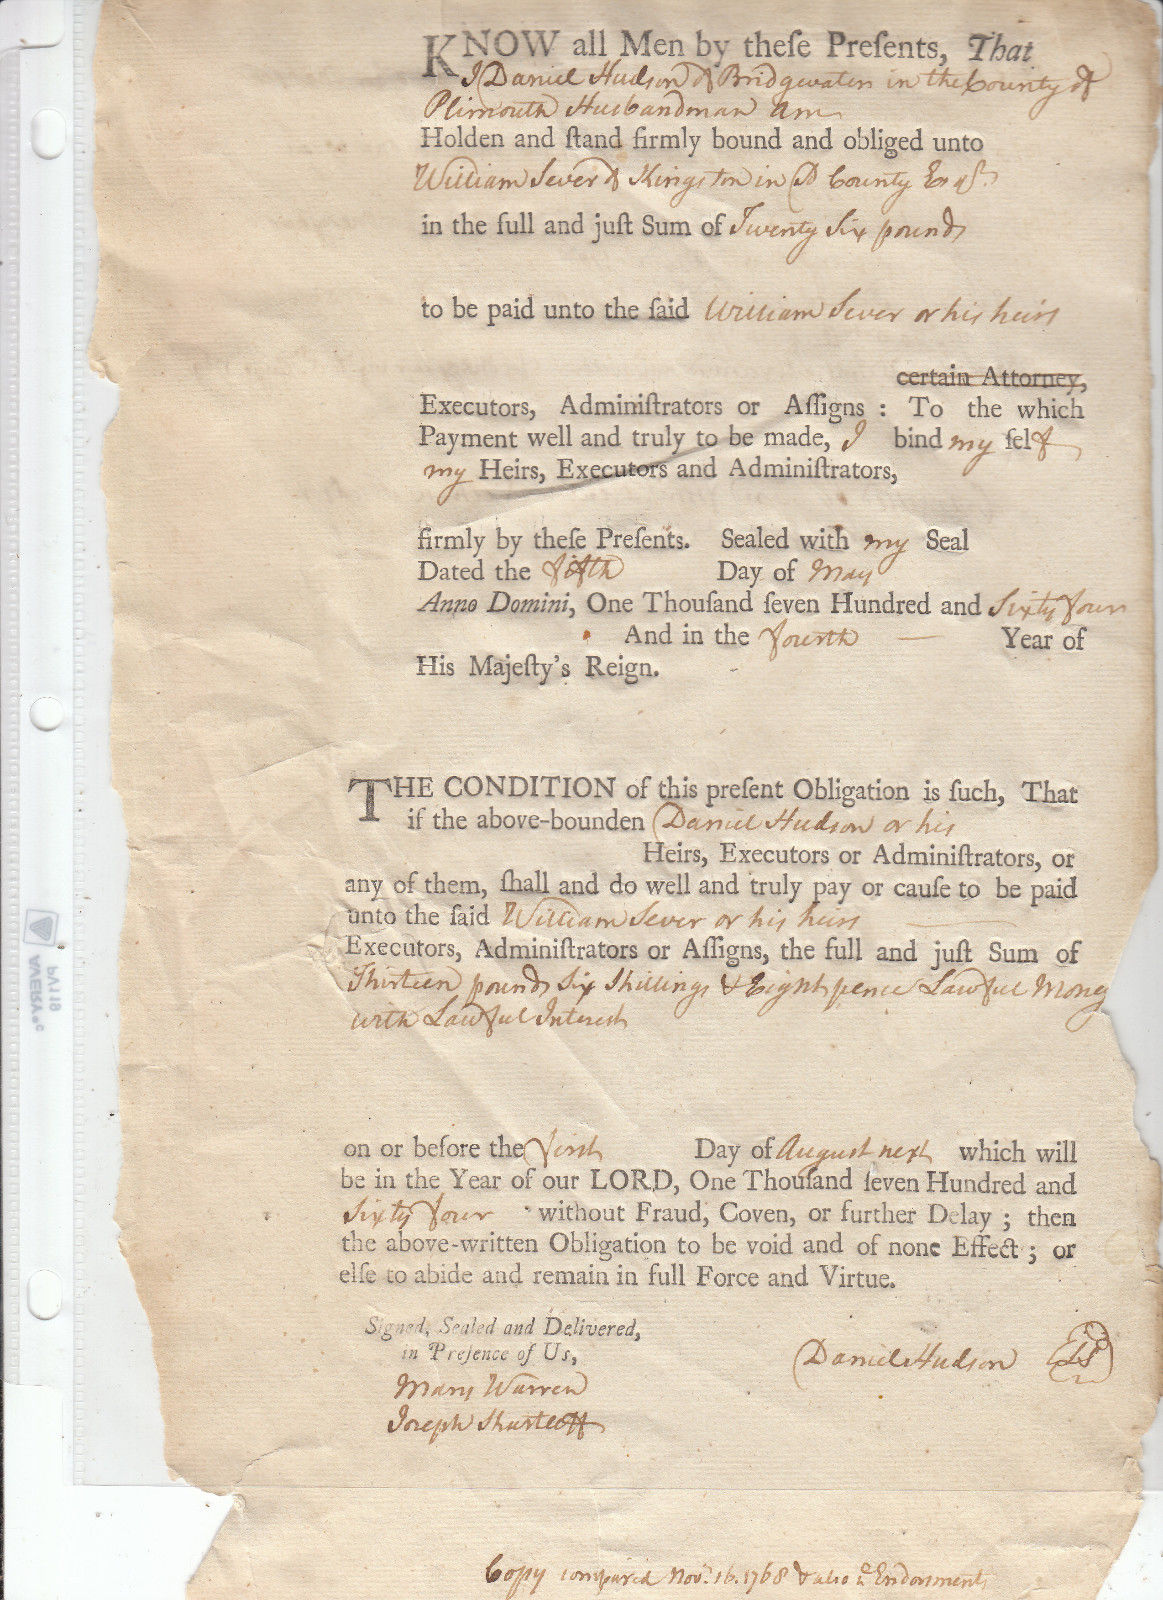 KNOW all Men by theſe Preſents, That
I Daniel Hudson of Bridgwater in the County of
Plimouth Husbandman am
Holden and ſtand firmly bound and obliged unto
William Sever of Kingston in sd County Esqr.
in the full and juſt Sum of Twenty Six pounds
to be paid unto the ſaid William Sever or his heirs
certain Attorney,
Executors, Adminiſtrators or Aſſigns : To the which
Payment well and truly to be made, I bind my ſelf
my Heirs, Executors and Adminiſtrators,
firmly by theſe Preſents. Sealed with my Seal
Dated the fifth Day of May
Anno Domini, One Thouſand ſeven Hundred and Sixty four
And in the fourth — Year of
His Majeſty's Reign.
THE CONDITION of this preſent Obligation is ſuch, That
if the above-bounden Daniel Hudson or his
Heirs, Executors or Adminiſtrators, or
any of them, ſhall and do well and truly pay or cauſe to be paid
unto the ſaid William Sever or his heirs
Executors, Adminiſtrators or Aſſigns, the full and juſt Sum of
Thirteen pounds Six Shillings & Eight pence Lawful Money
with Lawful Interest
on or before the first Day of August next which will
be in the Year of our LORD, One Thouſand ſeven Hundred and
Sixty four without Fraud, Coven, or further Delay ; then
the above-written Obligation to be void and of none Effect ; or
elſe to abide and remain in full Force and Virtue.
Signed, Sealed and Delivered,
in Preſence of Us,
Daniel Hudson LS
Mary Warren
Joseph Shurtleff
Copy compared Novr. 16. 1768 & also ye Endorsments